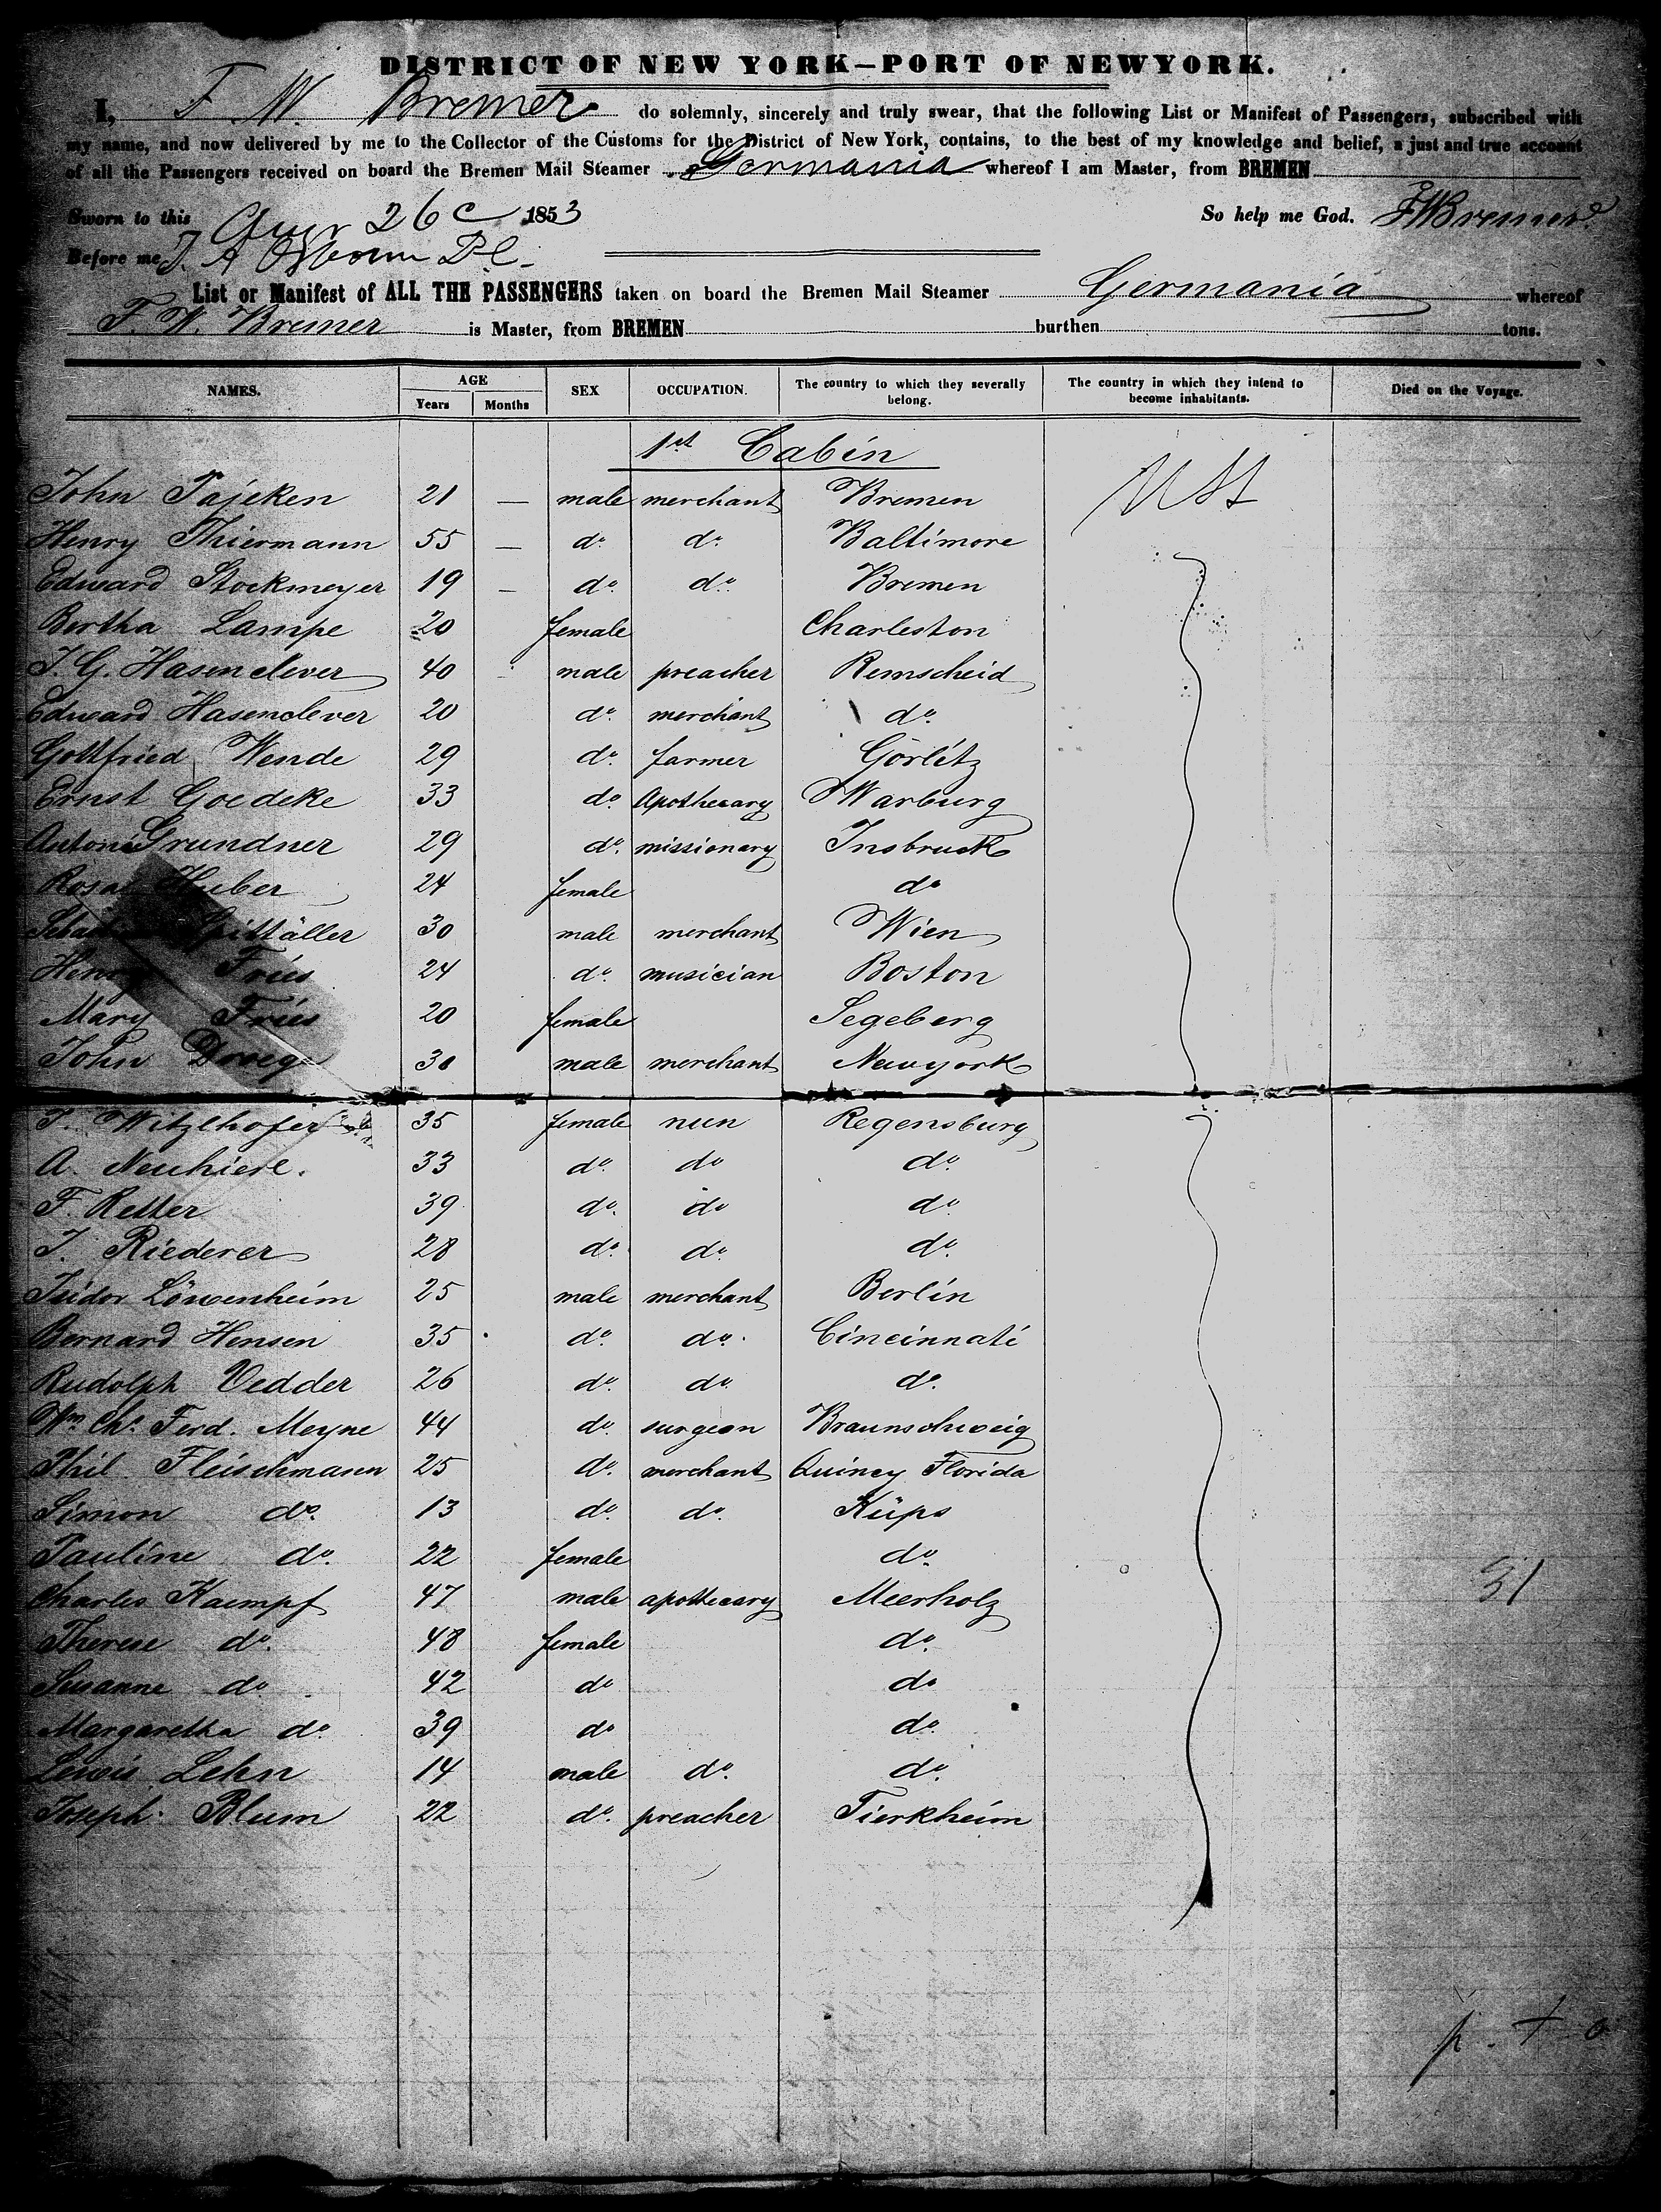 DISTRICT OF NEW YORK–PORT OF NEWYORK.
I, F W. Bremer do solemnly, sincerely and truly swear, that the following List or Manifest of Passengers, subscribed with
my name, and now delivered by me to the Collector of the Customs for the District of New York, contains, to the best of my knowledge and belief, a just and true account
of all the Passengers received on board the Bremen Mail Steamer Germania whereof I am Master, from BREMEN
Sworn to this Aug 26 1853 So help me God. FWBremer
Before me
List or Manifest of ALL THE PASSENGERS taken on board the Bremen Mail Steamer Germania whereof
F. W. Bremer is Master, from BREMEN burthen tons.
NAMES. AGE Years Months SEX OCCUPATION. The country to which they severally belong. The country in which they intend to become inhabitants. Died on the Voyage.
1st Cabin
John Tajeken 21 — male merchant Bremen USt
Henry Thiermann 55 — do. do. Baltimore
Edward Stockmeyer 19 — do. do. Bremen
Bertha Lampe 20 female Charleston
J. G. Hasenclever 40 male preacher Remscheid
Edward Hasenclever 20 do. merchant do.
Gottfried Wende 29 do. farmer Görlitz
Ernst Goedeke 33 do. Apothecary Warburg
Grundner 29 do. missionary Insbruck
Rosa Huber 24 female do
Spittäller 30 male merchant Wien
Henry Fries 24 do. musician Boston
Mary Fries 20 female Segeberg
John Droege 30 male merchant Newyork
Witzlhofer 35 female nun Regensburg
A. Neuhierl. 33 do. do do.
F. Retter 39 do. do do.
J. Riederer 28 do. do. do.
Isidor Löwenheim 25 male merchant Berlin
Bernard Hensen 35 do. do. Cincinnati
Rudolph Vedder 26 do. do. do.
Wm. Chr. Ferd. Meyne 44 do. surgeon Braunschweig
Phil. Fleischmann 25 do. merchant Quincy Florida
Simon do. 13 do. do. Küps
Pauline do. 22 female do.
Charles Kaempf 47 male apothecary Meerholz
Therese do. 48 female do.
Susanne do. 42 do do
Margaretha do. 39 do do.
Lewis Lehn 14 male do. do.
Joseph Blum 22 do. preacher Tierkheim
31
p. t o